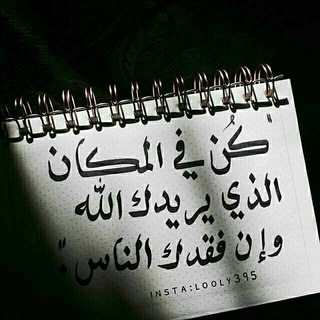 "كُن في المكان
الذي يريدك الله
وإن فقدك الناس."
INSTA:LOOLY395